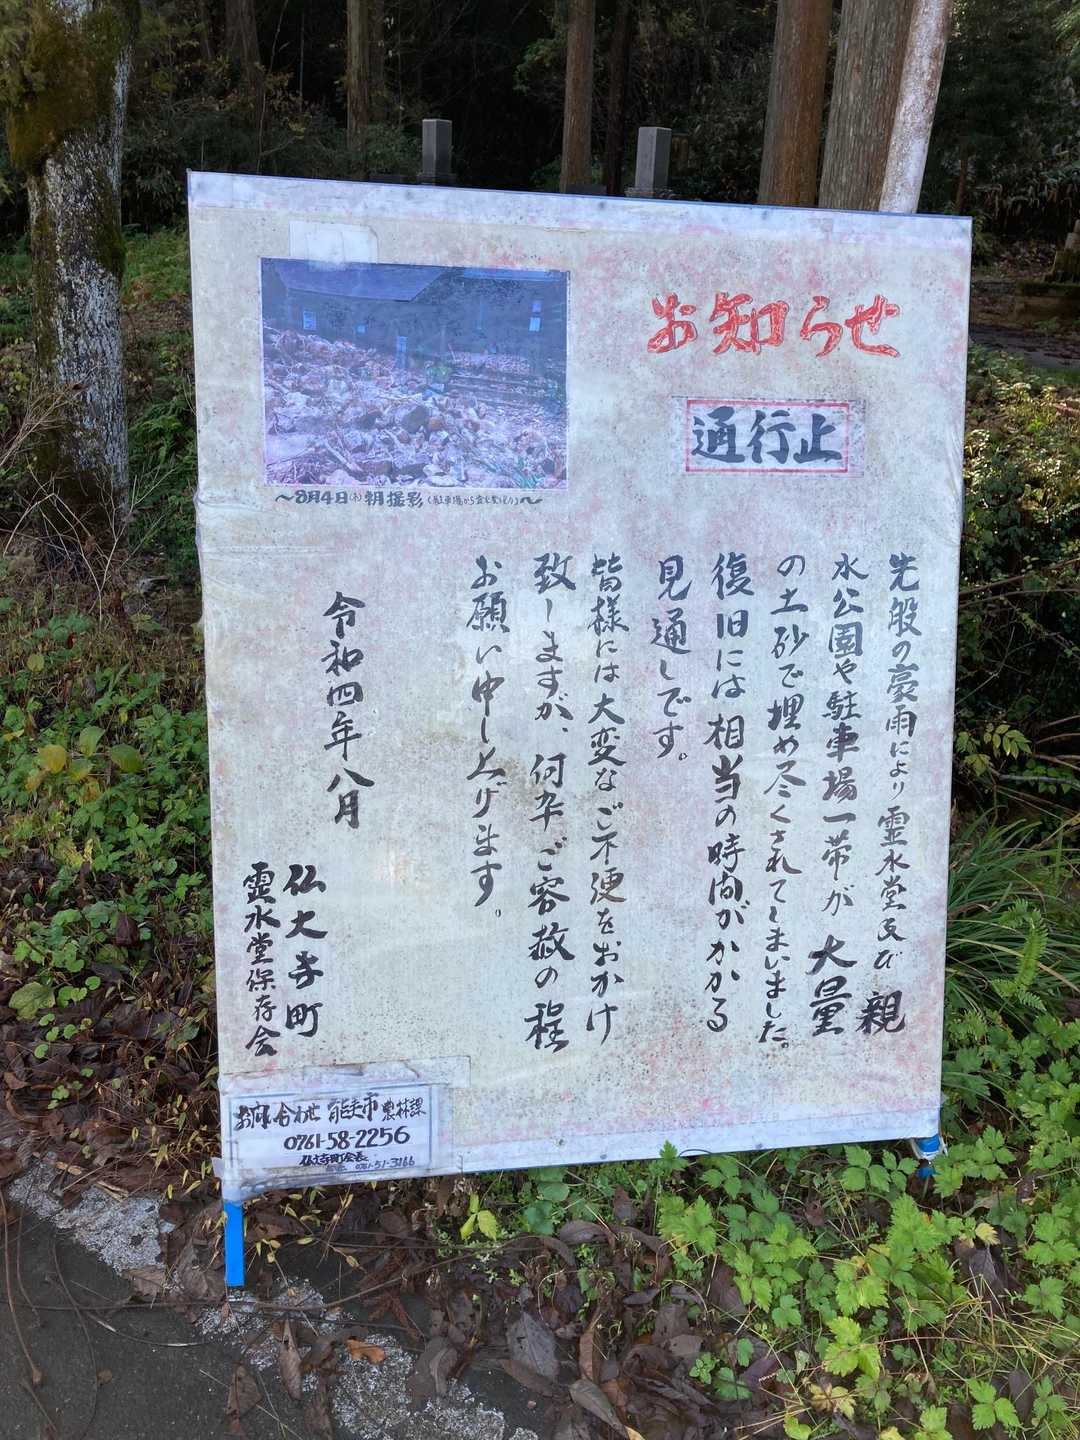 お知らせ
通行止
～8月4日(木)朝撮影
先般の豪雨により霊水堂及び親
水公園や駐車場一帯が大量
の土砂で埋め尽くされてしまいました。
復旧には相当の時間がかかる
見通しです。
皆様には大変なご不便をおかけ
致しますが、何卒ご容赦の程
お願い申し上げます。
令和四年八月
仏大寺町
霊水堂保存会
お問い合わせ 能美市農林課
0761-58-2256
仏大寺町会長
0761-51-3166